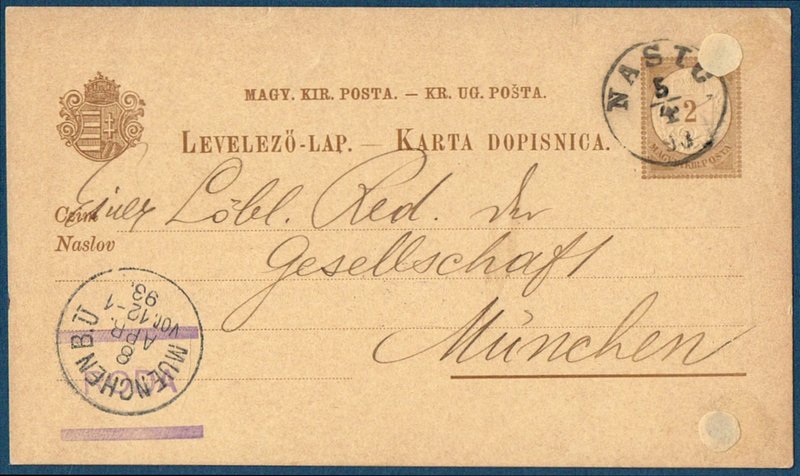 MAGY. KIR. POSTA. — KR. UG. POŠTA.
LEVELEZŐ-LAP. — KARTA DOPISNICA.
NAŠTC
5/4
93
2
MAGY. KIR. POSTA
Czim
Naslov
Löbl. Red. der
Gesellschaft
München
MUENCHEN B.Ü
8
APR.
VOR.12-1
93.